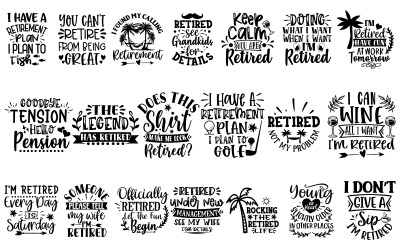 I HAVE A
RETIREMENT
PLAN
I PLAN TO
Fish
YOU CAN'T
RETIRE
FROM BEING
GREAT
I FOUND MY CALLING
Retirement
RETIRED
see
Grandkids
for
DETAILS
Keep
CALM
YOU ARE
Retired
DOING
WHAT I WANT
WHEN I WANT
I'M
Retired
I'M
Retired
HAVE FUN
AT WORK
TOMORROW
GOODBYE
TENSION
Hello
Pension
THE
LEGEND
HAS RETIRED
DOES THIS
Shirt
MAKE ME LOOK
Retired?
I HAVE A
RETIREMENT
PLAN
I PLAN TO
GOLF
RETIRED
NOT MY PROBLEM
I CAN
WINE
ALL I WANT
I'M RETIRED
I'M RETIRED
Every Day
IS
Saturday
SOMEONE
PLEASE TELL
my wife
I'M
RETIRED
Officially
RETIRED
Let the Fun
Begin
RETIRED
under New
MANAGEMENT
SEE MY WIFE
FOR DETAILS
ROCKING
THE
RETIRED
LIFE
Young
at
HEART
SLIGHTLY OLDER
IN OTHER PLACES
I DON'T
GIVE A
Sip
I'M RETIRED